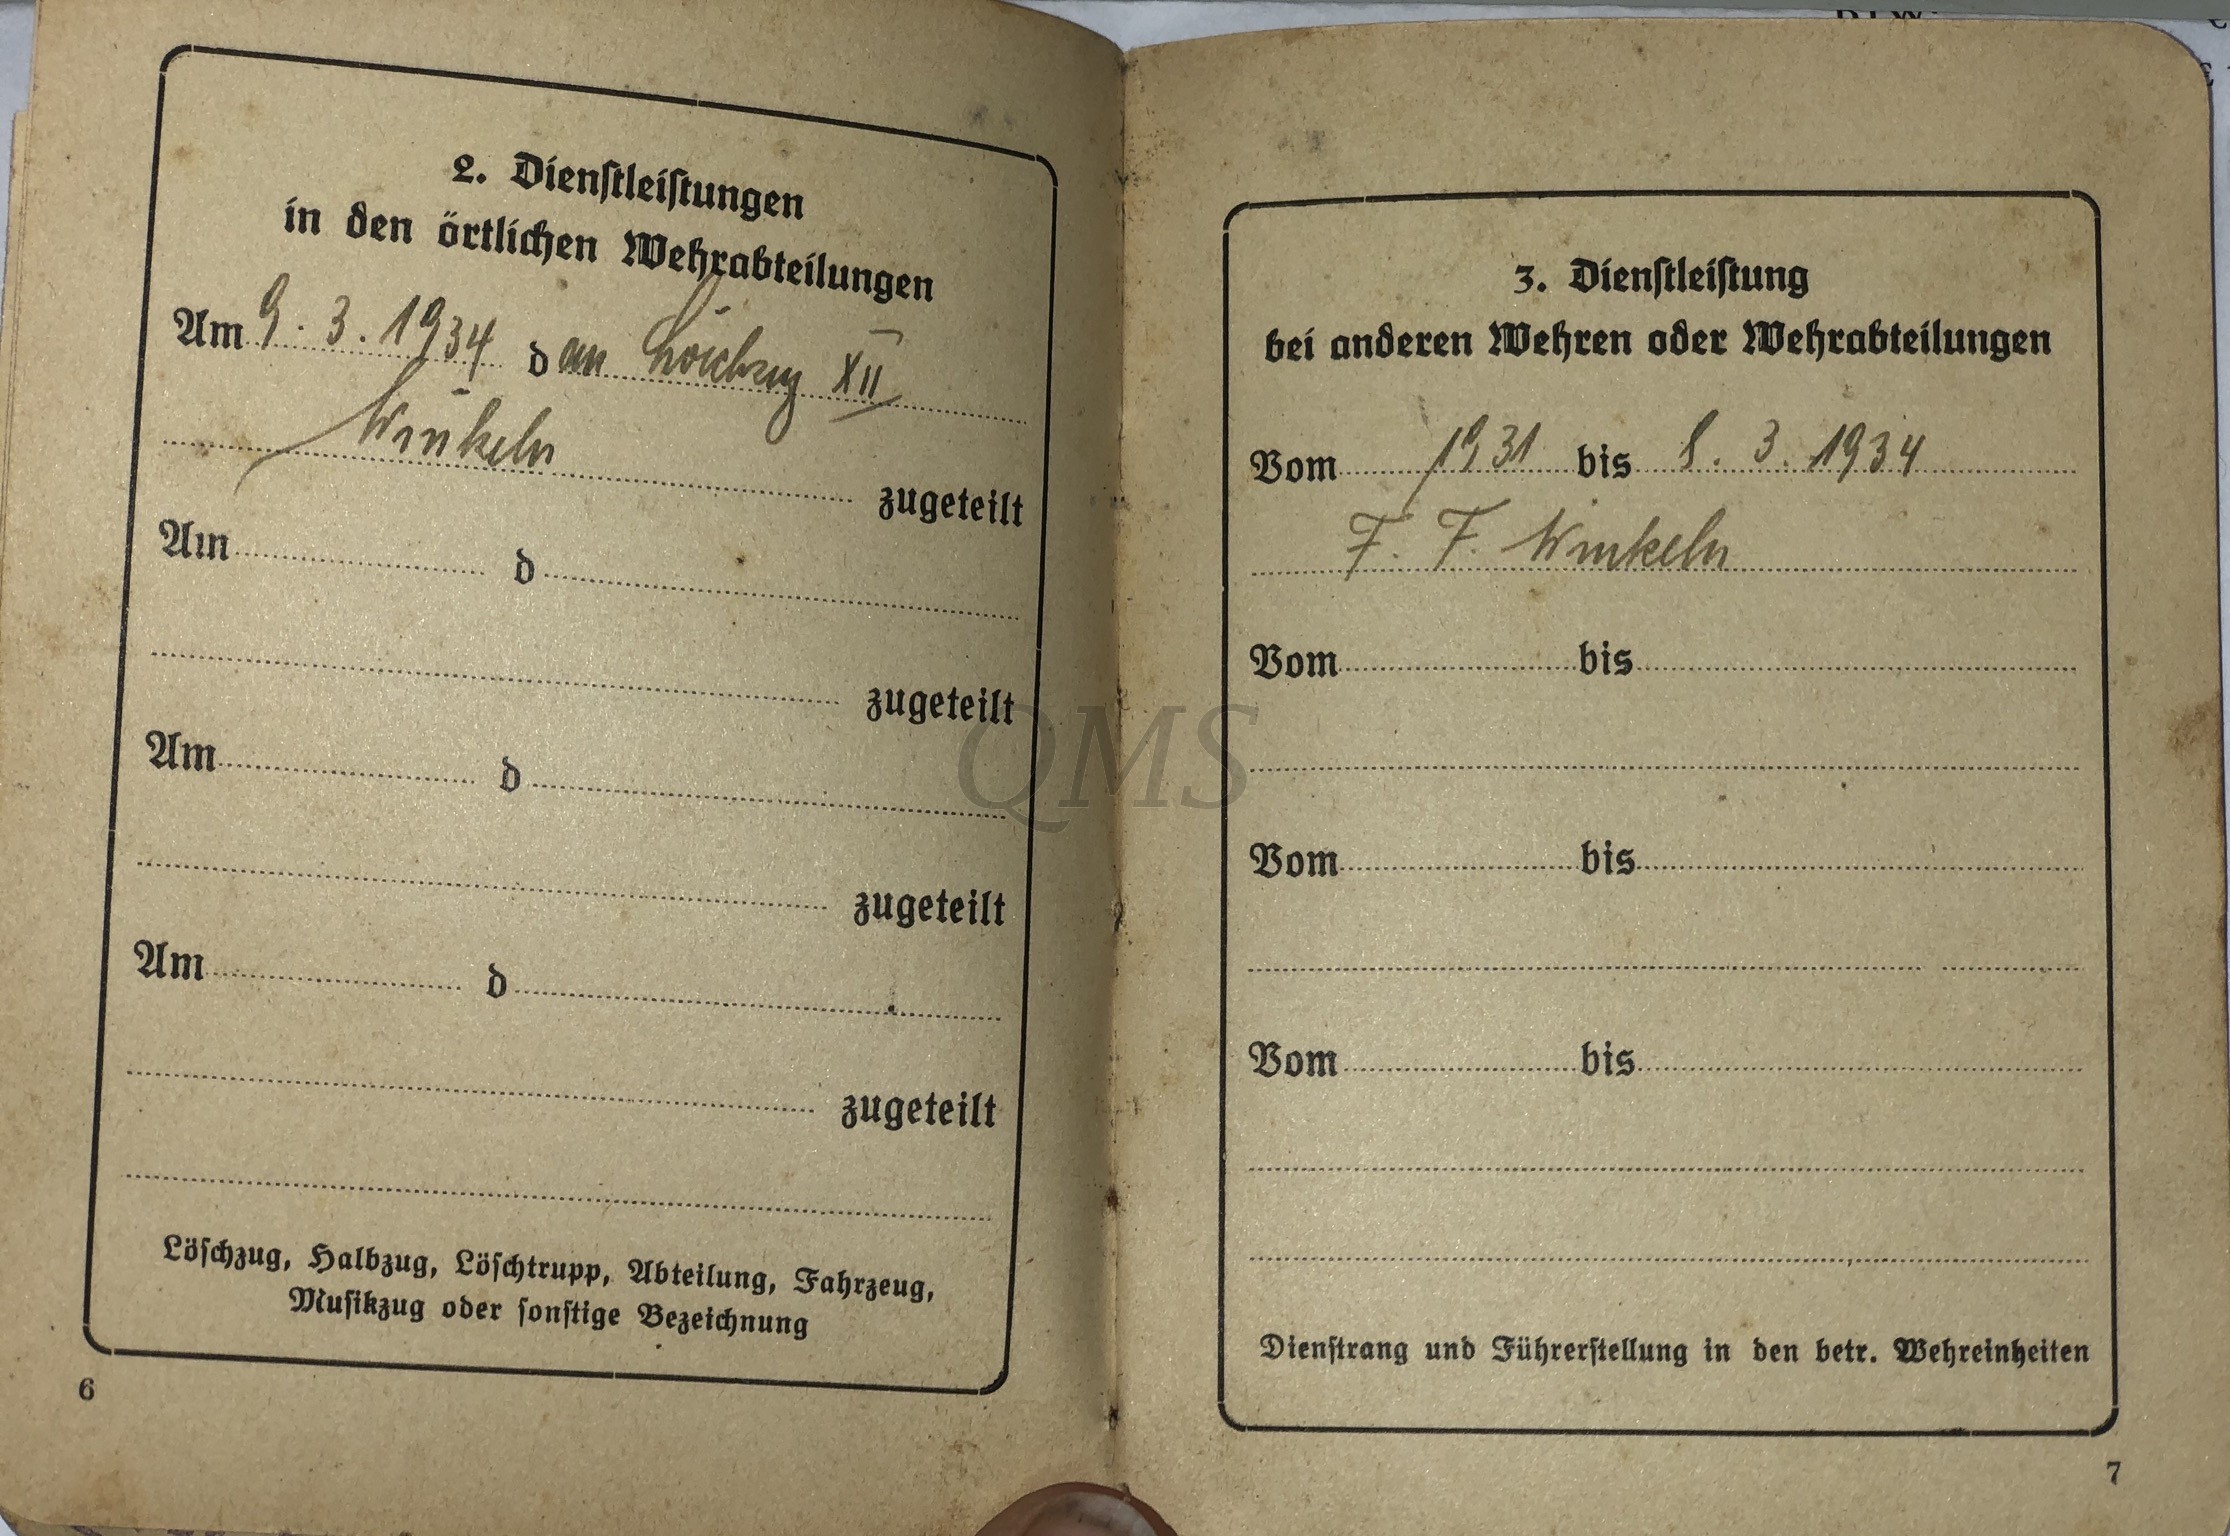 2. Dienstleistungen
in den örtlichen Wehrabteilungen
Am 9. 3. 1934 d an Löschzug XII
Winkeln
zugeteilt
Am d
zugeteilt
Am d
zugeteilt
Am d
zugeteilt
Löschzug, Halbzug, Löschtrupp, Abteilung, Fahrzeug,
Musikzug oder sonstige Bezeichnung
6
3. Dienstleistung
bei anderen Wehren oder Wehrabteilungen
Vom 1931 bis 8. 3. 1934
F. F. Winkeln
Vom bis
Vom bis
Vom bis
Dienstrang und Führerstellung in den betr. Wehreinheiten
7
QMS